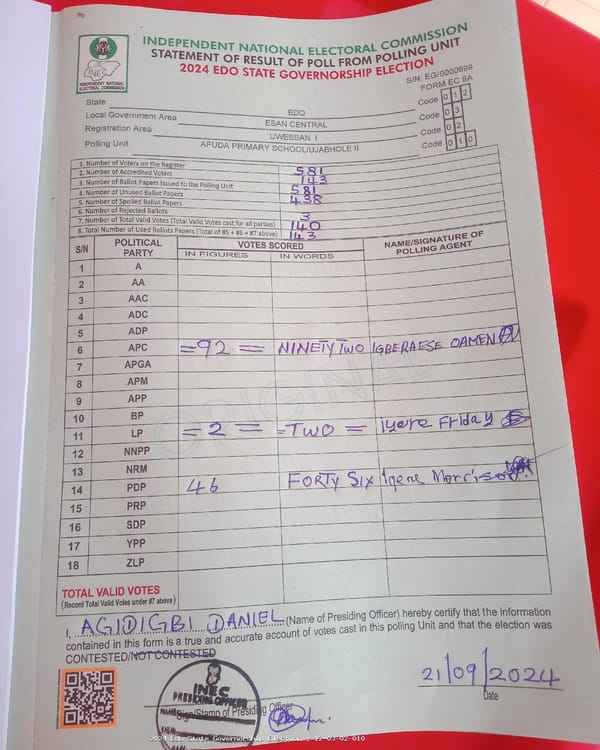 INEC
INDEPENDENT NATIONAL ELECTORAL COMMISSION
INDEPENDENT NATIONAL ELECTORAL COMMISSION
STATEMENT OF RESULT OF POLL FROM POLLING UNIT
2024 EDO STATE GOVERNORSHIP ELECTION
S/N: EG/0000699
FORM EC 8A
State EDO Code 0 1 2
Local Government Area ESAN CENTRAL Code 0 3
Registration Area UWESSAN I Code 0 2
Polling Unit AFUDA PRIMARY SCHOOL/UJABHOLE II Code 0 1 0
1. Number of Voters on the Register 581
2. Number of Accredited Voters 143
3. Number of Ballot Papers Issued to the Polling Unit 581
4. Number of Unused Ballot Papers 438
5. Number of Spoiled Ballot Papers
6. Number of Rejected Ballots 3
7. Number of Total Valid Votes (Total Valid Votes cast for all parties) 140
8. Total Number of Used Ballots Papers (Total of #5 + #6 + #7 above) 143
S/N POLITICAL PARTY VOTES SCORED NAME/SIGNATURE OF POLLING AGENT
IN FIGURES IN WORDS
1 A
2 AA
3 AAC
4 ADC
5 ADP
6 APC =92= NINETY TWO IGBERAESE OAMEN
7 APGA
8 APM
9 APP
10 BP
11 LP =2= =TWO= iyere Friday
12 NNPP
13 NRM
14 PDP 46 FORTY SIX
15 PRP
16 SDP
17 YPP
18 ZLP
ORIGINAL
TOTAL VALID VOTES
(Record Total Valid Votes under #7 above)
I, AGIDIGBI DANIEL (Name of Presiding Officer) hereby certify that the information
contained in this form is a true and accurate account of votes cast in this polling Unit and that the election was
CONTESTED/NOT CONTESTED
INEC
PRESIDING OFFICER
Sign/Stamp of Presiding Officer
21/09/2024
Date
2024 Edo State Governorship Election : 12-03-02-010